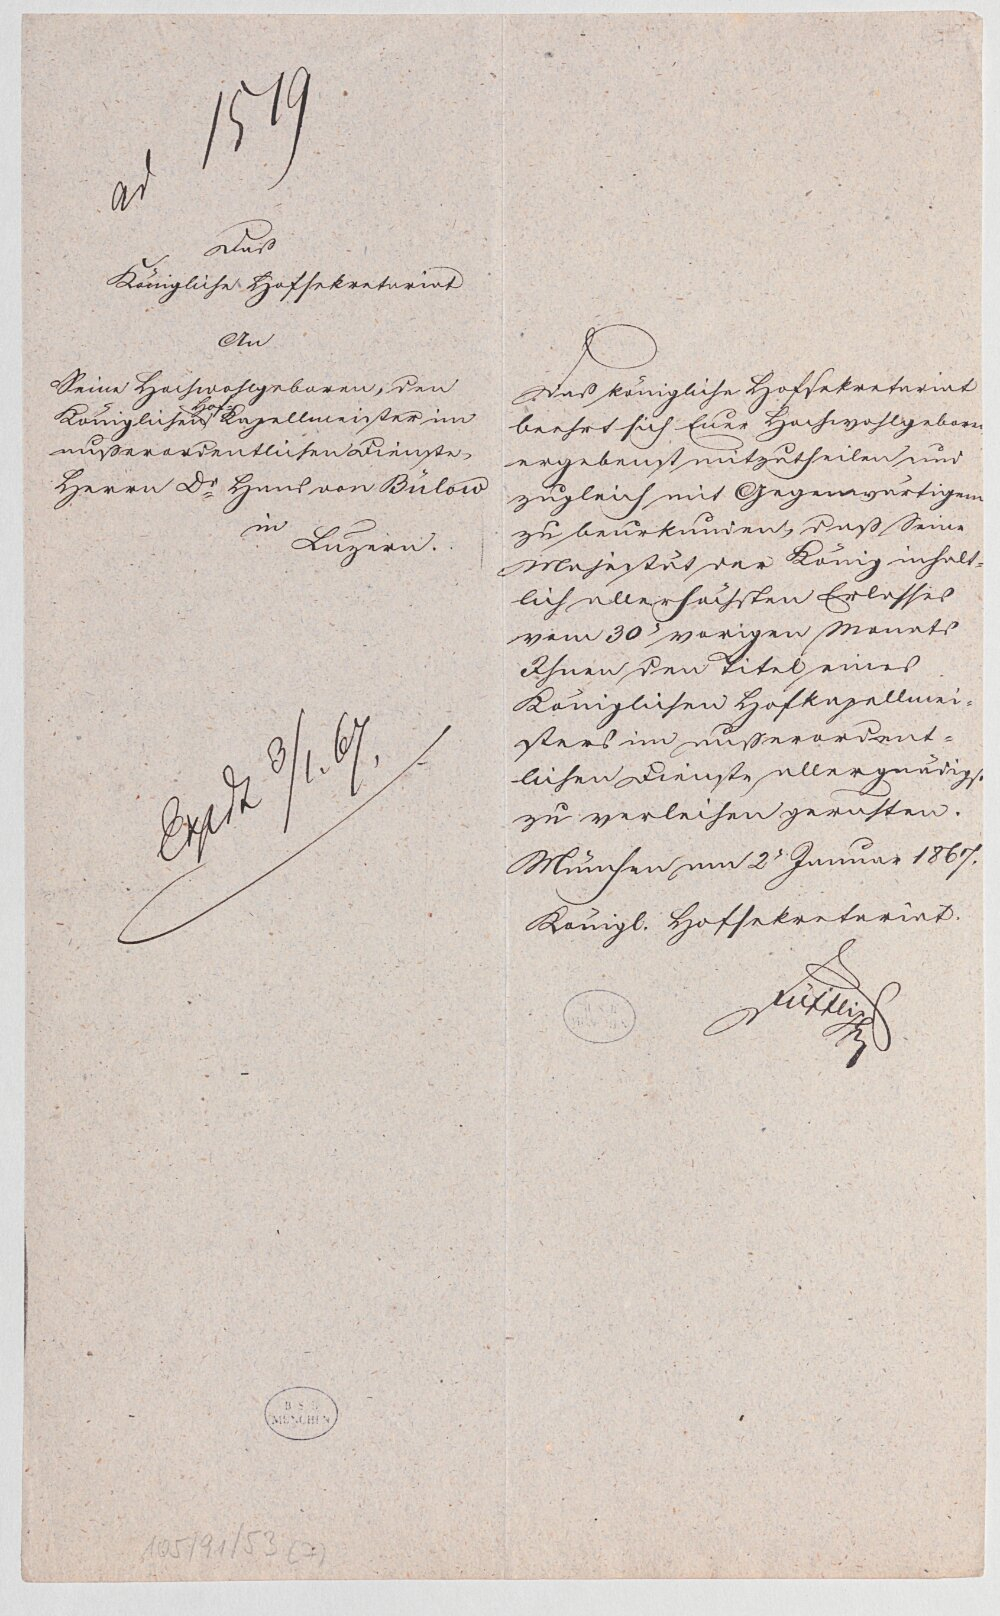 ad 1519
Das
Königliche Hofsekretariat
An
Seine Hochwohlgeboren, den
Königlichen Hof-Kapellmeister im
außerordentlichen Dienste,
Herrn Dr. Hans von Bülow
in
Luzern.
Expdt 3/1. 67.
Das königliche Hofsekretariat
beehrt sich Euer Hochwohlgeboren
ergebenst mitzutheilen und
zugleich mit Gegenwärtigem
zu beurkunden, daß Seine
Majestät der König inhalt-
lich allerhöchsten Erlasses
vom 30s vorigen Monats
Ihnen den Titel eines
Königlichen Hofkapellmei-
sters im außerordent-
lichen Dienste allergnädigst
zu verleihen geruhten.
München am 2s Januar 1867.
Königl. Hofsekretariat.
B S B
MÜNCHEN
B S B
MÜNCHEN
105/91/53 (7)